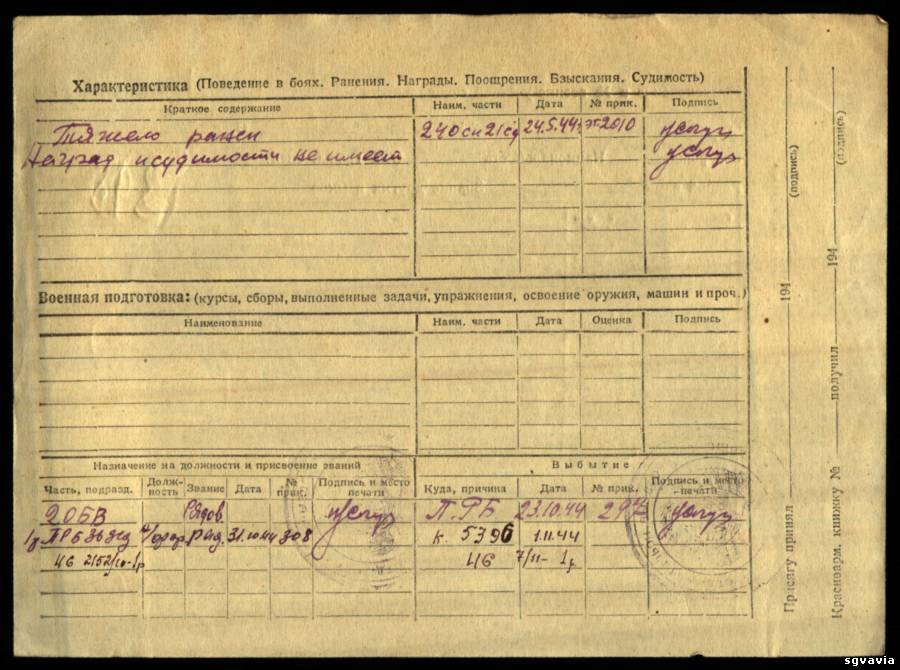 Характеристика (Поведение в боях. Ранения. Награды. Поощрения. Взыскания. Судимость)
Краткое содержание Наим. части Дата № прик. Подпись
Тяжело ранен 240 сп 21 сд 24.5.44
Наград и судимости не имеет
Военная подготовка: (курсы, сборы, выполненные задачи, упражнения, освоение оружия, машин и проч.)
Наименование Наим. части Дата Оценка Подпись
Назначение на должности и присвоение званий Выбытие
Часть, подразд. Должность Звание Дата № прик. Подпись и место печати Куда, причина Дата № прик. Подпись и место печати
20БВ Рядов. П.РБ 23.10.44
ряд. 31.10.44 308 к. 5396 1.11.44
46 46 7/11-
(подпись)
194
Присягу принял
(подпись)
194
получил
Красноарм. книжку №
sgvavia